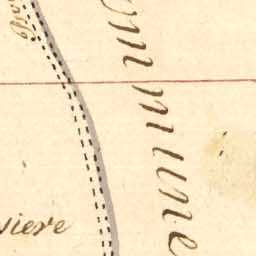 ommune
viere